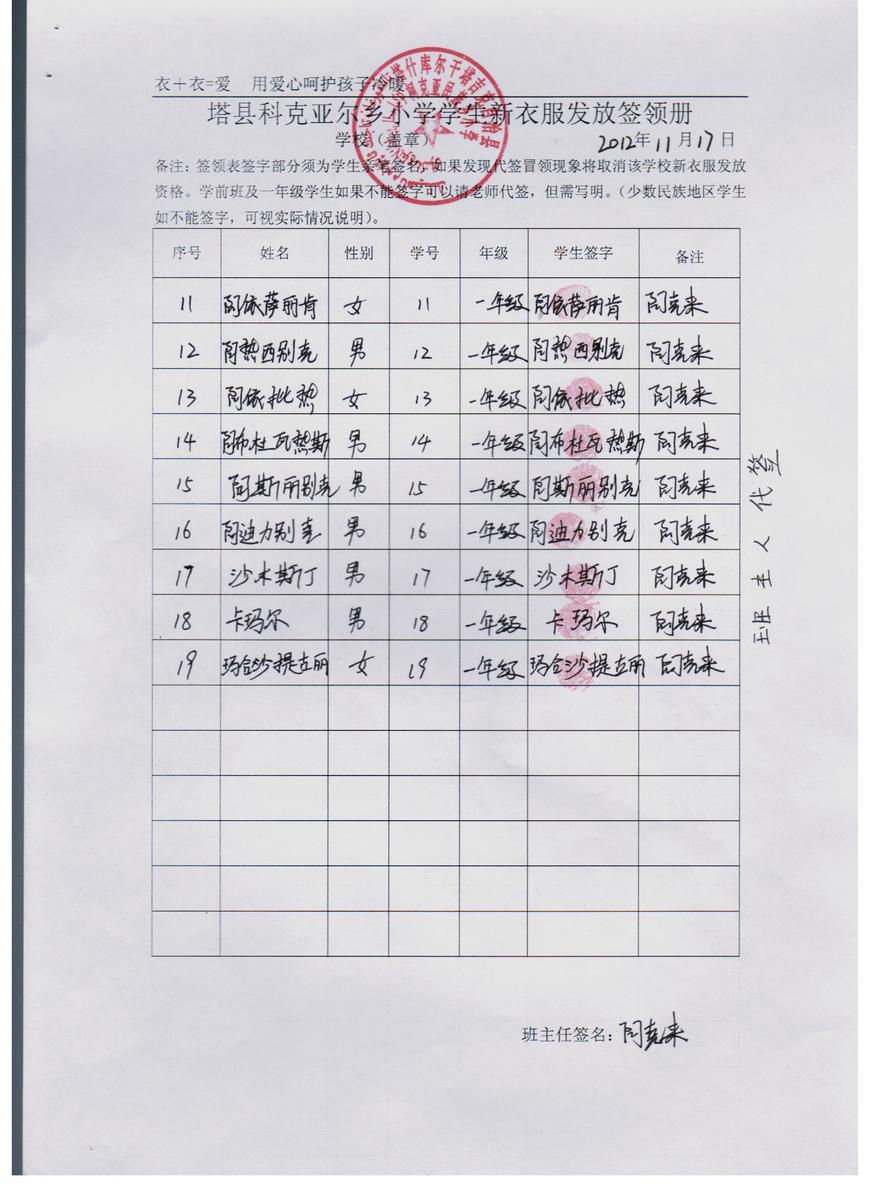 衣+衣=爱 用爱心呵护孩子冷暖
塔县科克亚尔乡小学学生新衣服发放签领册
学校（盖章） 2012年11月17日
备注：签领表签字部分须为学生亲笔签名，如果发现代签冒领现象将取消该学校新衣服发放
资格。学前班及一年级学生如果不能签字可以请老师代签，但需写明。（少数民族地区学生
如不能签字，可视实际情况说明）。
序号 姓名 性别 学号 年级 学生签字 备注
11 阿依萨丽肯 女 11 一年级 阿依萨丽肯 阿克来
12 阿热西别克 男 12 一年级 阿热西别克 阿克来
13 阿依批热 女 13 一年级 阿依批热 阿克来
14 阿布杜瓦热斯 男 14 一年级 阿布杜瓦热斯 阿克来
15 阿斯丽别克 男 15 一年级 阿斯丽别克 阿克来
16 阿迪力别克 男 16 一年级 阿迪力别克 阿克来
17 沙木斯丁 男 17 一年级 沙木斯丁 阿克来
18 卡玛尔 男 18 一年级 卡玛尔 阿克来
19 玛合沙提古丽 女 19 一年级 玛合沙提古丽 阿克来
班主人代签
班主任签名：阿克来